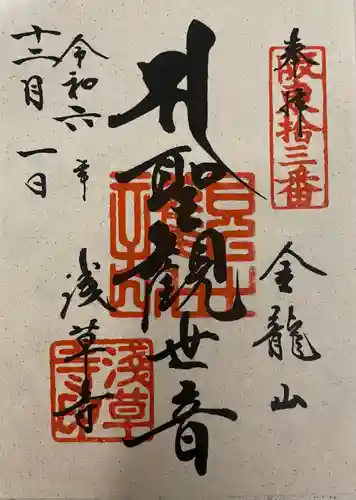 奉拝
坂東拾三番
金龍山
聖観世音
浅草寺
淺草寺印
令和六年
十二月一日